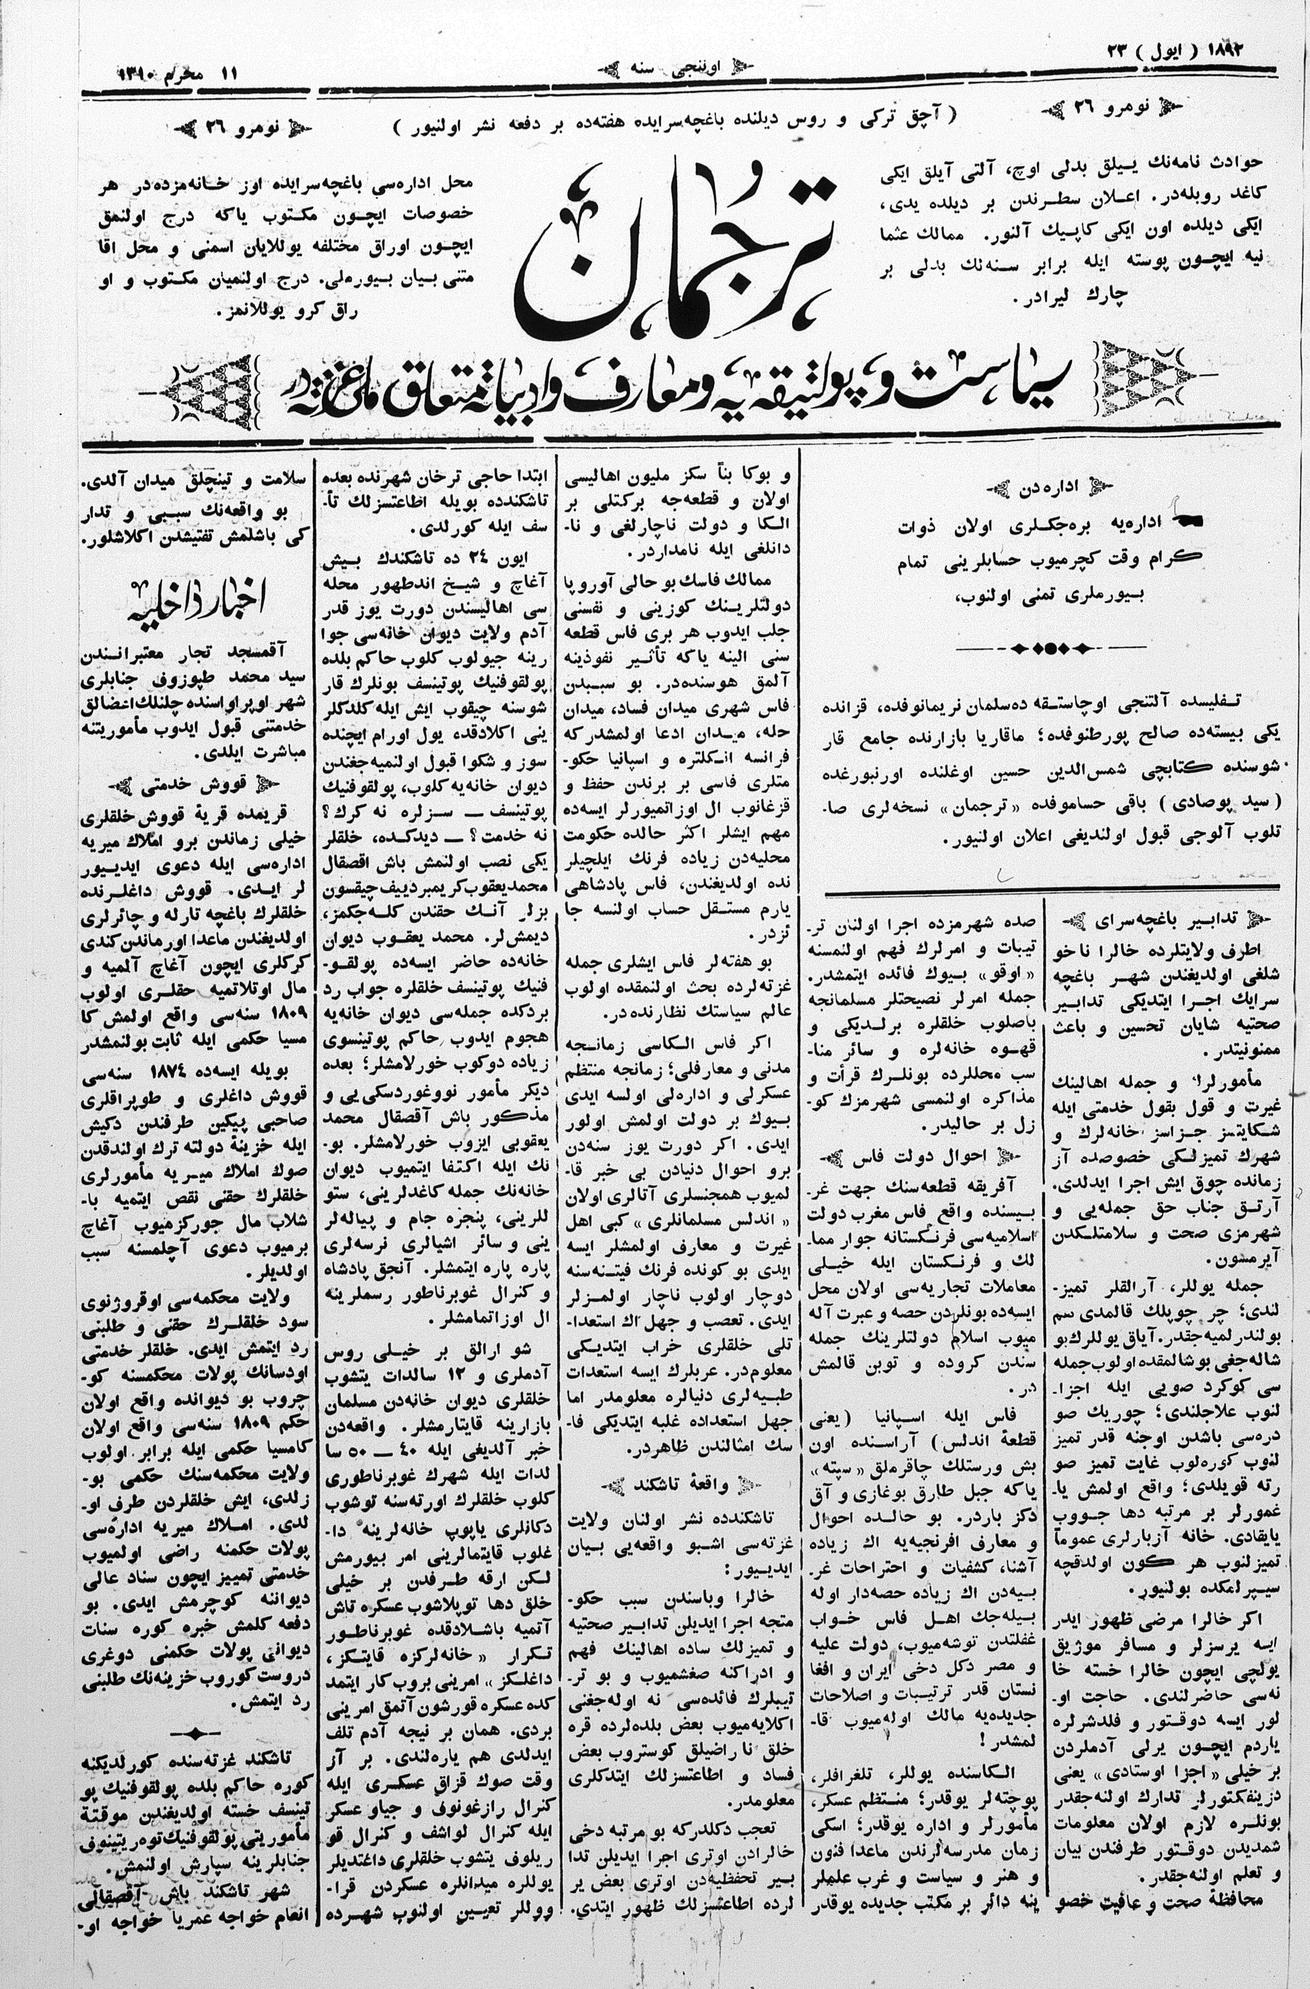 ١٨٩٢ ( ايول ) ٢٣
اوننجی سنه
١١ محرم ١٣١٠
نومرو ٢٦
( آچق ترکی و روس ديلنده باغچه‌سرايده هفته‌ده بر دفعه نشر اولنيور )
نومرو ٢٦
حوادث نامه‌نك ييلق بدلی اوچ، آلتی آيلق ايكی
كاغد روبله‌در. اعلان سطرندن بر ديلده يدی،
ايكی ديلده اون ايكی كاپيك آلنور. ممالك عثما
نيه ايچون پوسته ايله برابر سنه‌نك بدلی بر
چارك ليرادر.
ترجمان
محل اداره‌سی باغچه‌سرايده اوز خانه‌مزده‌در هر
خصوصات ايچون مكتوب ياكه درج اولنمق
ايچون اوراق مختلفه يوللايان اسمنی و محل اقا
متنی بيان بيورملی. درج اولنميان مكتوب و او
راق كرو يوللانمز.
سياست و پولتيقه‌يه و معارف و ادبياته متعلق ملی غزته‌در
اداره‌دن
اداره‌يه بره‌جكلری اولان ذوات
كرام وقت كچرميوب حسابلرينی تمام
بيورملری تمنی اولنوب،
تفليسده آلتنجی اوچاستقه ده‌سلمان نريمانوفده، قزانده
يكی بيسته‌ده صالح پورطنوفده؛ ماقاريا بازارنده جامع قار
شوسنده كتابچی شمس‌الدين حسين اوغلنده اورنبورغده
( سيد پوصادی ) باقی حساموفده «ترجمان» نسخه‌لری صا-
تلوب آلوجی قبول اولنديغی اعلان اولنيور.
تدابير باغچه‌سرای
اطرف ولايتلرده خالرا ناخو
شلغی اولديغندن شهر باغچه
سرايك اجرا ايتديكی تدابير
صحتيه شايان تحسين و باعث
ممنونيتدر.
مأمورلرڭ و جمله اهالينك
غيرت و قول بقول خدمتی ايله
شكايتمز جزاسز خانه‌لرك و
شهرك تميزلكی خصوصده آز
زمانده چوق ايش اجرا ايدلدی.
آرتق جناب حق جمله‌يی و
شهرمزی صحت و سلامتلكدن
آيرمسون.
جمله يوللر، آرالقلر تميز-
لندی؛ چر چوپلك قالمدی سم
بولندرلميه‌جقدر. آياق يوللرك بو
شاله‌جغی بوشالمقده اولوب جمله
سی كوكرد صويی ايله اجزا-
لنوب علاجلندی؛ چوريك صو
دره‌سی باشدن اوجنه قدر تميز
لنوب كوره‌لوب غايت تميز صو
رته قويلدی؛ واقع اولمش يا-
غمورلر بر مرتبه دها جووب
يايقادی. خانه آزبارلری عموماً
تميزلنوب هر كون اولدقچه
سيپرلمكده بولنيور.
اكر خالرا مرضی ظهور ايدر
ايسه يرسزلر و مسافر موژيق
يولجی ايچون خالرا خسته خا
نه‌سی حاضرلندی. حاجت او-
لور ايسه دوقتور و فلدشرلره
ياردم ايچون يرلی آدملردن
بر خيلی «اجزا اوستادی» يعنی
دزينفكتورلر تدارك اولنه‌جقدر
بونلره لازم اولان معلومات
شمديدن دوقتور طرفندن بيان
و تعلم اولنه‌جقدر.
محافظهٔ صحت و عافيت خصو
صده شهرمزده اجرا اولنان تر-
تيبات و امرلرك فهم اولنمسنه
«اوقو» بيوك فائده ايتمشدر.
جمله امرلر نصيحتلر مسلمانجه
باصلوب خلقلره برلديكی و
قهوه خانه‌لره و سائر منا-
سب محللرده بونلرك قرأت و
مذاكره اولنمسی شهرمزك كو-
زل بر حاليدر.
احوال دولت فاس
آفريقه قطعه‌سنك جهت غر-
بيسنده واقع فاس مغرب دولت
اسلاميه‌سی فرنكستانه جوار مما-
لك و فرنكستان ايله خيلی
معاملات تجاريه‌سی اولان محل
ايسه‌ده بونلردن حصه و عبرت آله
ميوب اسلام دولتلرينك جمله
سندن كروده و توبن قالمش
در.
فاس ايله اسپانيا (يعنی
قطعهٔ اندلس) آراسنده اون
بش ورستلك چاقرملق «سپته»
ياكه جبل طارق بوغازی و آق
دكز باردر. بو حالده احوال
و معارف افرنجيه‌يه اك زياده
آشنا، كشفيات و احتراعات غر-
بيه‌دن اك زياده حصه‌دار اوله
بيله‌جك اهل فاس خواب
غفلتدن توشه‌ميوب، دولت عليه
و مصر دكل دخی ايران و افغا
نستان قدر ترتيبات و اصلاحات
جديده‌يه مالك اوله‌ميوب قا-
لمشدر!
الكاسنده يوللر، تلغرافلر،
پوچته‌لر يوقدر؛ منتظم عسكر،
مأمورلر و اداره يوقدر؛ اسكی
زمان مدرسه‌لرندن ماعدا فنون
و هنر و سياست و غرب علملر
ينه دائر بر مكتب جديده يوقدر
و بوكا بنأ سكز مليون اهاليسی
اولان و قطعه‌جه بركتلی بر
الكا و دولت ناچارلغی و نا-
دانلغی ايله نامداردر.
ممالك فاسك بو حالی آوروپا
دولتلرينك كوزينی و نفسنی
جلب ايدوب هر بری فاس قطعه
سنی الينه ياكه تأثير نفوذينه
آلمق هوسنده‌در. بو سببدن
فاس شهری ميدان فساد، ميدان
حله، ميدان ادعا اولمشدركه
فرانسه انكلتره و اسپانيا حكو-
متلری فاسی بر برندن حفظ و
قزغانوب ال اوزاتميورلر ايسه‌ده
مهم ايشلر اكثر حالده حكومت
محليه‌دن زياده فرنك ايلچيلر
نده اولديغندن، فاس پادشاهی
يارم مستقل حساب اولنسه جا
ئزدر.
بو هفته‌لر فاس ايشلری جمله
غزته‌لرده بحث اولنمقده اولوب
عالم سياستك نظارنده‌در.
اكر فاس الكاسی زمانجه
مدنی و معارفلی؛ زمانجه منتظم
عسكرلی و اداره‌لی اولسه ايدی
بيوك بر دولت اولمش اولور
ايدی. اكر دورت يوز سنه‌دن
برو احوال دنيادن بی خبر قا-
لميوب همجنسلری آتالری اولان
«اندلس مسلمانلری» كبی اهل
غيرت و معارف اولمشلر ايسه
ايدی بو كونده فرنك فيتنه‌سنه
دوچار اولوب ناچار اولمزلر
ايدی. تعصب و جهل اك استعدا-
تلی خلقلری خراب ايتديكی
معلوم‌در. عربلرك ايسه استعدات
طبيه‌لری دنيالره معلومدر اما
جهل استعداده غلبه ايتديكی فا-
سك امثالندن ظاهردر.
واقعهٔ تاشكند
تاشكندده نشر اولنان ولايت
غزته‌سی اشبو واقعه‌يی بيان
ايدييور:
خالرا وباسندن سبب حكو-
متجه اجرا ايديلن تدابير صحتيه
و تميزلك ساده اهالينك فهم
و ادراكنه صغشميوب و بو تر-
تيبلرك فائده‌سی نه اوله‌جغنی
اكلايه‌ميوب بعض بلده‌لرده قره
خلق نا راضيلق كوستروب بعض
فساد و اطاعتسزلك ايتدكلری
معلومدر.
تعجب دكلدركه بو مرتبه دخی
خالرادن اوتری اجرا ايديلن تدا
بير تحفظيه‌دن اوتری بعض ير
لرده اطاعتسزلك ظهور ايتدی.
ابتدا حاجی ترخان شهرنده بعده
تاشكندده بويله اطاعتسزلك تأ-
سف ايله كورلدی.
ايون ٢٤ ده تاشكندك بيش
آغاچ و شيخ اندطهور محله
سی اهاليسندن دورت يوز قدر
آدم ولايت ديوان خانه‌سی جوا
رينه جيولوب كلوب حاكم بلده
پولقوفنيك پوتينسف بونلرك قار
شوسنه چيقوب ايش ايله كلدكلر
ينی اكلادقد، يول اورام ايچنده
سوز و شكوا قبول اولنميه‌جغندن
ديوان خانه‌يه كلوب، پولقوفنيك
پوتينسف — سزلره نه كرك؟
نه خدمت؟ — ديدكده، خلقلر
يكی نصب اولنمش باش اقصقال
محمد يعقوب كريمبردييف چيقسون
بزلر آنك حقندن كله‌جكمز،
ديمش‌لر. محمد يعقوب ديوان
خانه‌ده حاضر ايسه‌ده پولقو-
فنيك پوتينسف خلقلره جواب رد
بردكده جمله‌سی ديوان خانه‌يه
هجوم ايدوب حاكم پوتينسوی
زياده دوكوب خورلامشلر؛ بعده
ديكر مأمور نووغوردسكی‌يی و
مذكور باش آقصقال محمد
يعقوبی ايزوب خورلامشلر. بو-
نك ايله اكتفا ايتميوب ديوان
خانه‌نك جمله كاغدلرينی، ستو
للرينی، پنجره جام و پياله‌لر
ينی و سائر اشيالری نرسه‌لری
پاره پاره ايتمشلر. آنجق پادشاه
و كنرال غوبرناطور رسملرينه
ال اوزاتمامشلر.
شو ارالق بر خيلی روس
آدملری و ١٢ سالدات يتشوب
خلقلری ديوان خانه‌دن مسلمان
بازارينه قايتارمشلر. واقعه‌دن
خبر آلديغی ايله ٤٠ — ٥٠ سا
لدات ايله شهرك غوبرناطوری
كلوب خلقلرك اورته‌سنه توشوب
دكانلری ياپوپ خانه‌لرينه دا-
غلوب قايتمالرينی امر بيورمش
لكن ارقه طرفدن بر خيلی
خلق دها توپلاشوب عسكره تاش
آتميه باشلادقده غوبرناطور
تكرار «خانه‌لركزه قايتكز،
داغلكز» امرينی بروب كار ايتمد
كده عسكره قورشون آتمق امرينی
بردی. همان بر نيجه آدم تلف
ايدلدی هم ياره‌لندی. بر آز
وقت صوك قزاق عسكری ايله
كنرال رازغونوف و جياو عسكر
ايله كنرال لواشف و كنرال قو
ريلوف يتشوب خلقلری داغتديلر
يوللره ميدانلره عسكردن قرا-
ووللر تعيين اولنوب شهرده
سلامت و تينچلق ميدان آلدی.
بو واقعه‌نك سببی و تدار
كی باشلمش تفتيشدن اكلاشلور.
اخبار داخليه
آقمسجد تجار معتبرانندن
سيد محمد طپوزوف جنابلری
شهر اوپراواسنده چلنلك اعضالق
خدمتی قبول ايدوب مأموريتنه
مباشرت ايلدی.
قووش خدمتی
قريمده قريهٔ قووش خلقلری
خيلی زماندن برو املاك ميريه
اداره‌سی ايله دعوی ايديور
لر ايدی. قووش داغلرنده
خلقلرك باغچه تارله و چائرلری
اولديغندن ماعدا اورماندن كندی
كركلری ايچون آغاچ آلميه و
مال اوتلاتميه حقلری اولوب
١٨٠٩ سنه‌سی واقع اولمش كا
مسيا حكمی ايله ثابت بولنمشدر
بويله ايسه‌ده ١٨٧٤ سنه‌سی
قووش داغلری و طوپراقلری
صاحبی پيكين طرفندن دكيش
ايله خزينهٔ دولته ترك اولندقدن
صوك املاك ميريه مأمورلری
خلقلرك حقنی نقص ايتميه با-
شلاب مال جوركزميوب آغاچ
برميوب دعوی آچلمسنه سبب
اولديلر.
ولايت محكمه‌سی اوقروژنوی
سود خلقلرك حقنی و طلبنی
رد ايتمش ايدی. خلقلر خدمتی
اودسانك پولات محكمسنه كو-
چروب بو ديوانده واقع اولان
حكم ١٨٠٩ سنه‌سی واقع اولان
كامسيا حكمی ايله برابر اولوب
ولايت محكمه‌سنك حكمی بو-
زلدی، ايش خلقلردن طرف او-
لدی. املاك ميريه اداره‌سی
پولات حكمنه راضی اولميوب
خدمتی تمييز ايچون سناد عالی
ديواننه كوچرمش ايدی. بو
دفعه كلمش خبره كوره سنات
ديوانی پولات حكمنی دوغری
دروست كوروب خزينه‌نك طلبنی
رد ايتمش.
تاشكند غزته‌سنده كورلديكنه
كوره حاكم بلده پولقوفنيك پو
تينسف خسته اولديغندن موقتة
مأموريتی پولقوفنيك توه‌ريتينوف
جنابلرينه سپارش اولنمش.
شهر تاشكند باش آقصقالی
انعام خواجه عمريا خواجه او-